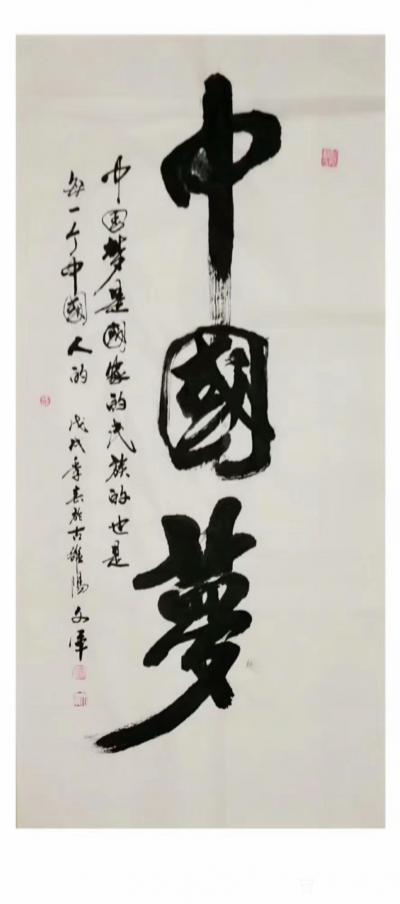 中國夢
中国梦是國家的民族的也是
每一个中國人的 戊戌季春於古雒陽 文軍